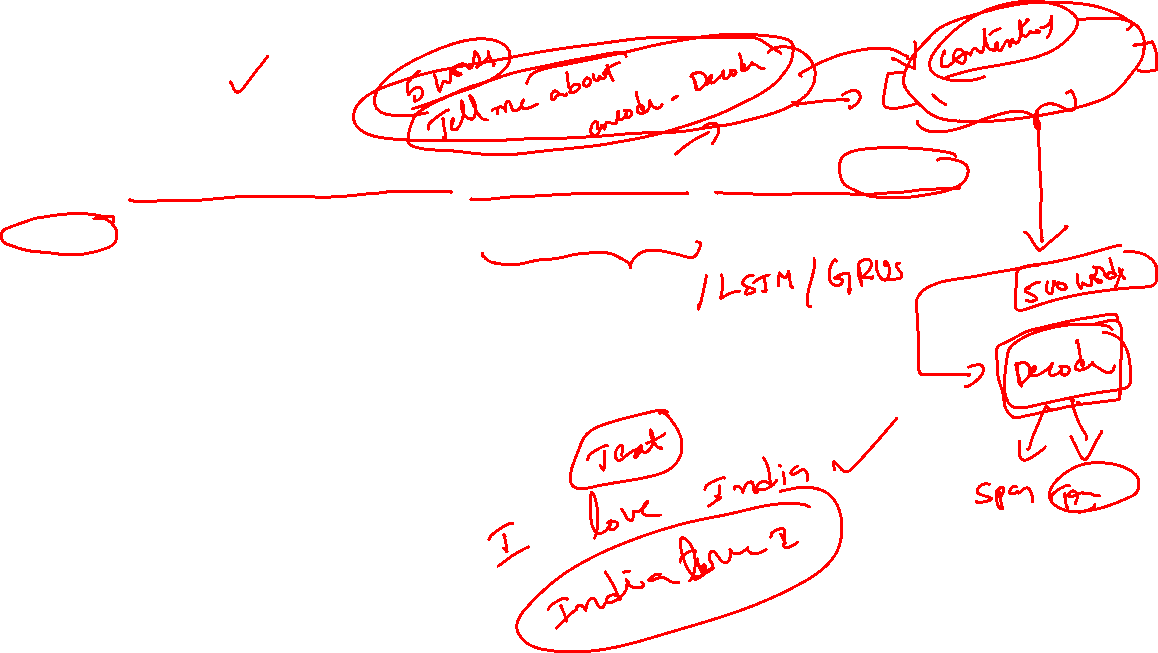 5 words
Tell me about
encode - Decode
context
/ LSTM / GRUs
500 words
Decode
Text
I love India
India love I
Span